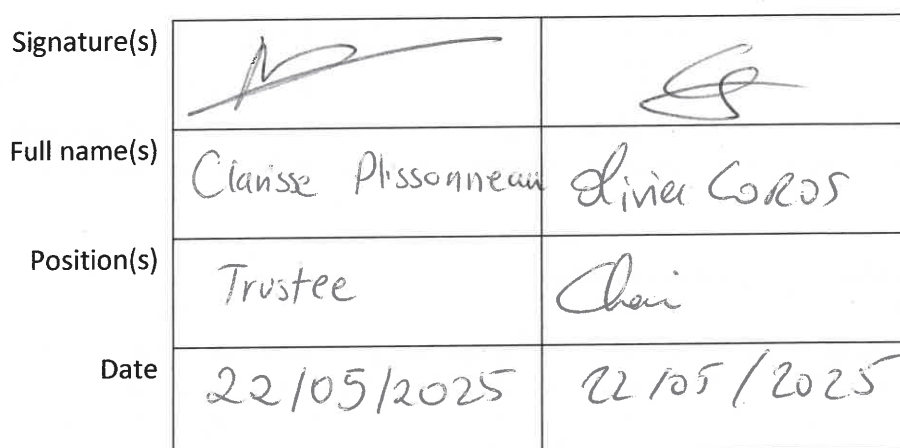 Signature(s)
Full name(s) Clarisse Plissonneau Olivier COROS
Position(s) Trustee Chair
Date 22/05/2025 22/05/2025